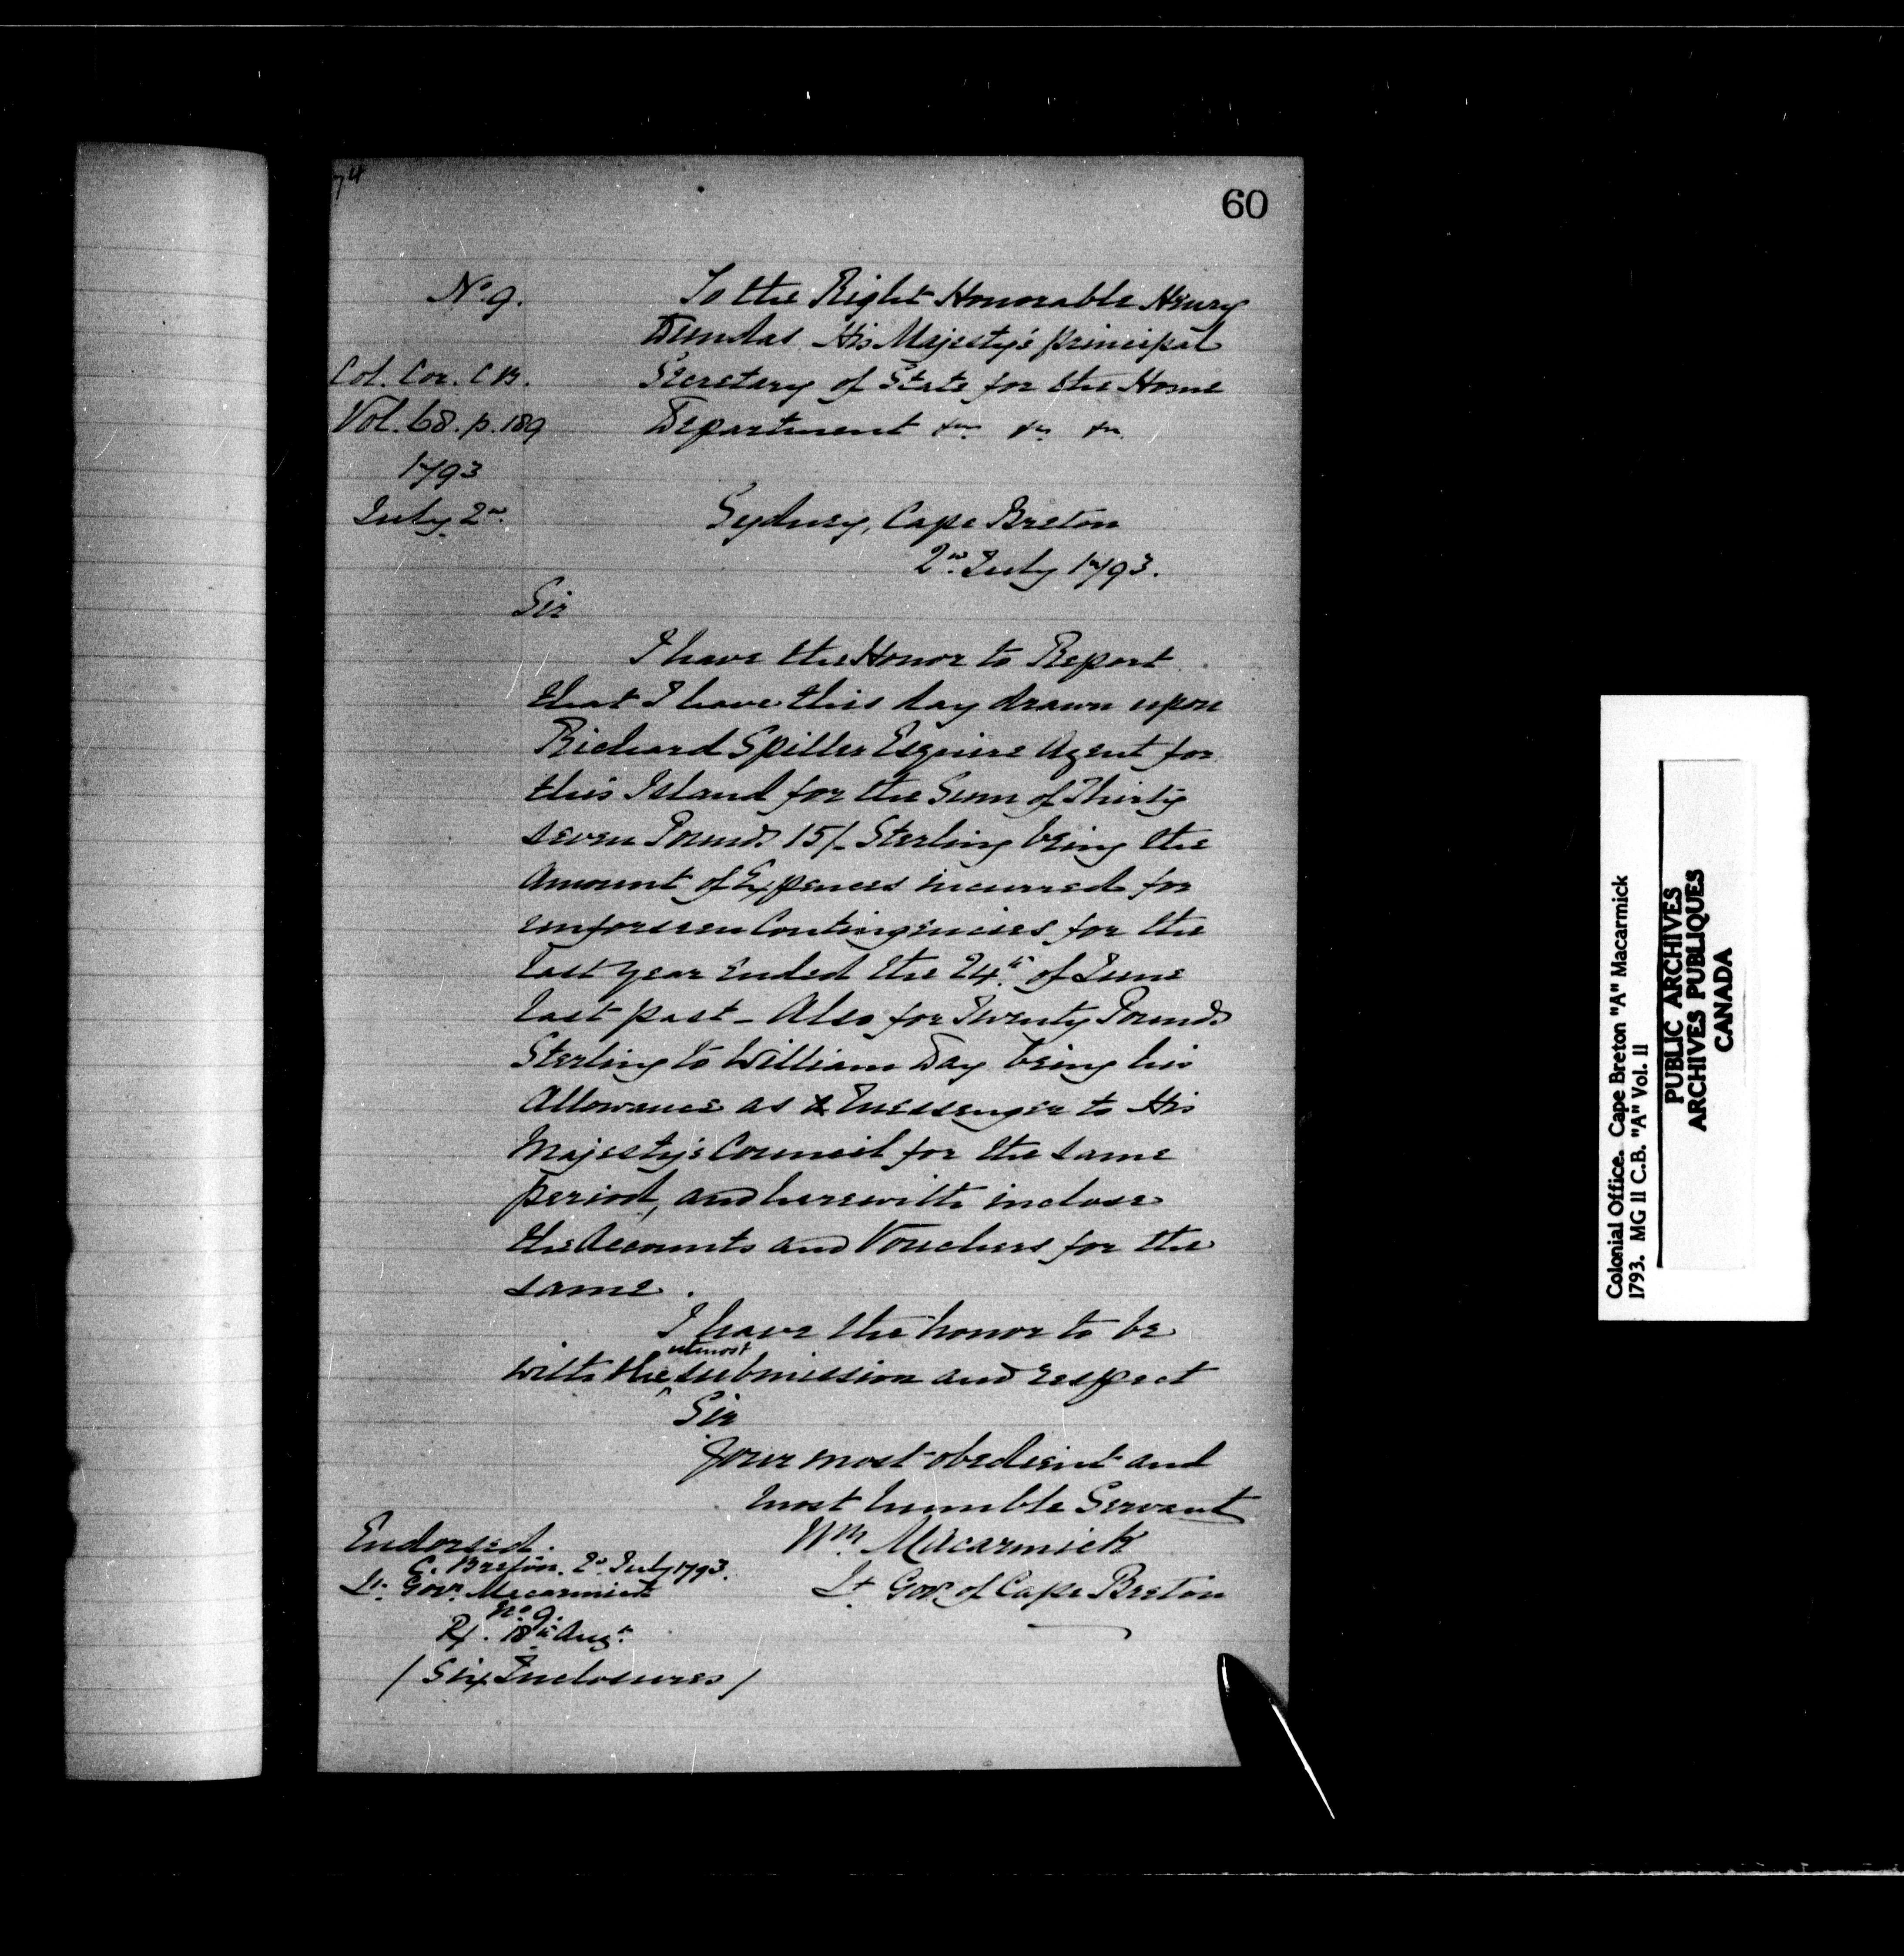 74
60
No. 9.
Col. Cor. C B.
Vol. 68. p. 189
1793
July 2nd.
To the Right Honorable Henry
Dundas His Majesty's principal
Secretary of State for the Home
Department &c. &c. &c.
Sydney, Cape Breton
2nd July 1793.
Sir
I have the Honor to Report
that I have this day drawn upon
Richard Spiller Esquire Agent for
this Island for the Sum of Thirty
seven Pounds 15/- Sterling being the
Amount of Expences incurred for
unforseen Contingencies for the
last year ended the 24th of June
last past - Also for Twenty Pounds
Sterling to William Day being his
Allowance as Messenger to His
Majesty's Council for the same
period, and herewith inclose
the Accounts and Vouchers for the
same.
I have the honor to be
with the utmost submission and respect
Sir
Your most obedient and
most humble Servant
Wm. Macarmick
Lt. Govr. of Cape Breton
Endorsed.
C. Breton. 2d July 1793.
Lt. Govr. Macarmick
No. 9.
Rx. 18th Augt.
/ Six Inclosures /
Colonial Office. Cape Breton "A" Macarmick
1793. MG 11 C.B. "A" Vol. 11
PUBLIC ARCHIVES
ARCHIVES PUBLIQUES
CANADA